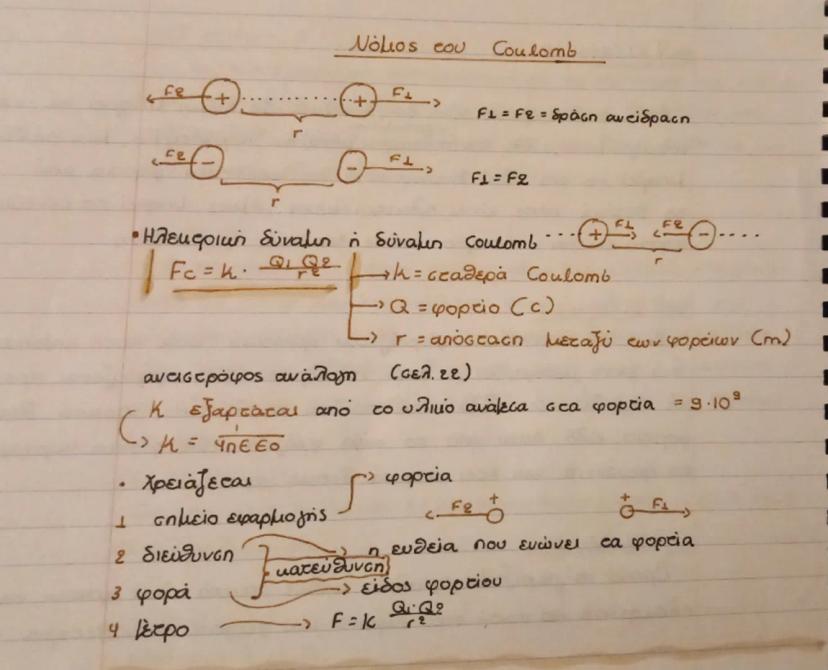 Νόμος του Coulomb
F2 + + F1
r
F1 = F2 = δράση αντίδραση
F2 - - F1
r
F1 = F2
• Ηλεκτρική δύναμη ή δύναμη Coulomb ... + F1 F2 - ....
r
Fc = k · Q1 Q2 / r² → k = σταθερά Coulomb
→ Q = φορτίο (C)
→ r = απόσταση μεταξύ των φορτίων (m)
αντιστρόφος ανάλογη (σελ. 22)
K εξαρτάται από το υλικό ανάμεσα στα φορτία = 9·10⁹
→ K = 1 / 4πεε0
• Χρειάζεται → φορτία
1 σημείο εφαρμογής F2 + + F1
2 διεύθυνση → η ευθεία που ενώνει τα φορτία
κατεύθυνση
3 φορά → είδος φορτίου
4 μέτρο → F = k Q1·Q2 / r²